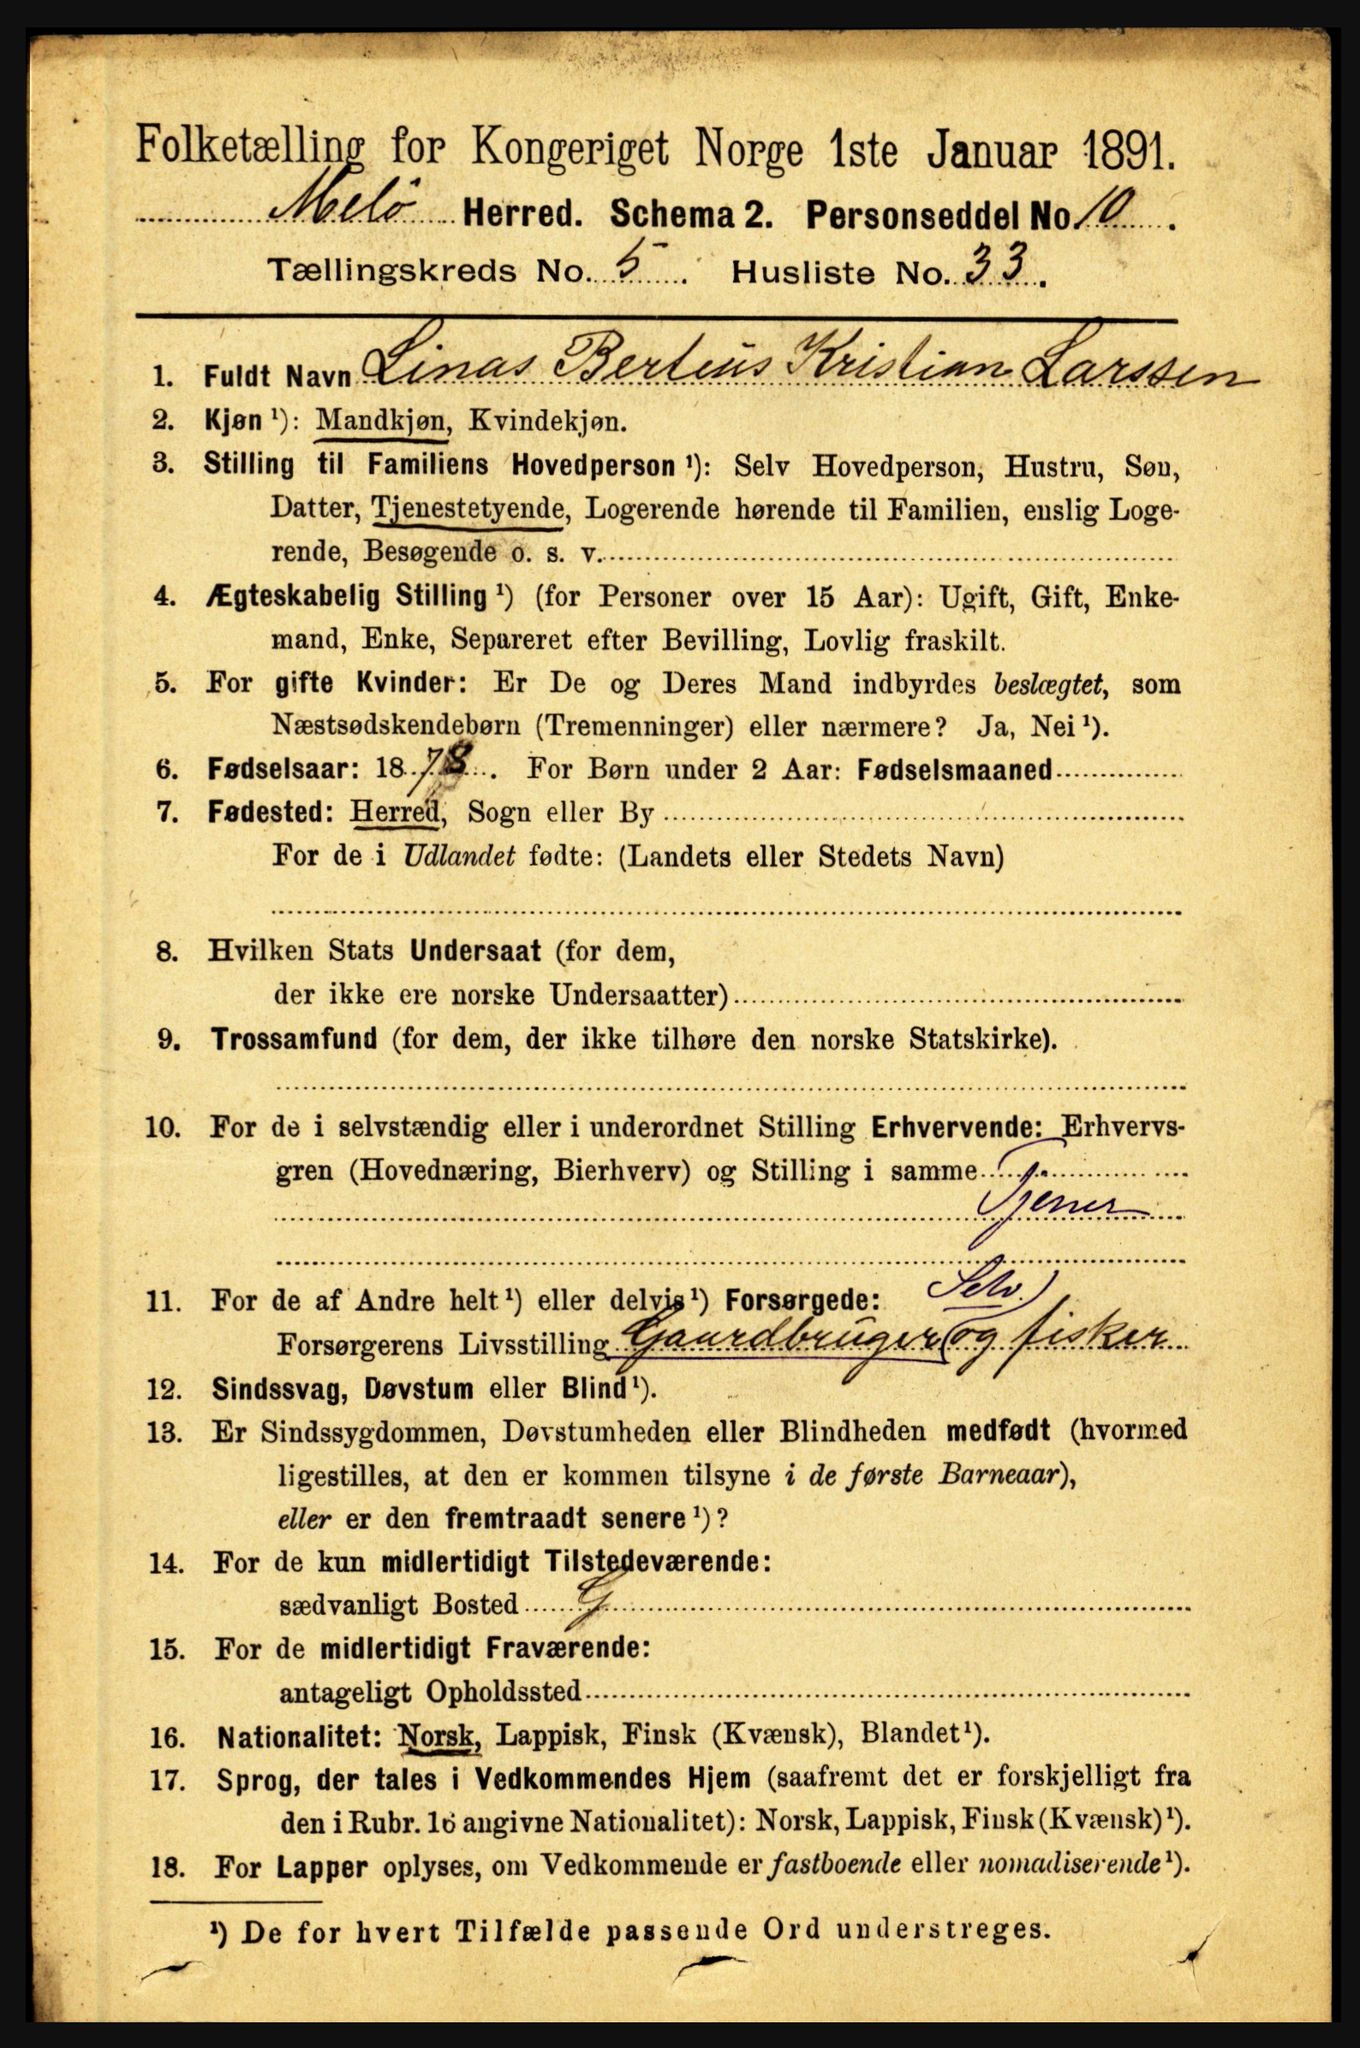 Folketælling for Kongeriget Norge 1ste Januar 1891.
Melö Herred. Schema 2. Personseddel No. 10.
Tællingskreds No. 5. Husliste No. 33.
1. Fuldt Navn Linas Berteus Kristian Larssen
2. Kjøn ¹): Mandkjøn, Kvindekjøn.
3. Stilling til Familiens Hovedperson ¹): Selv Hovedperson, Hustru, Søn,
Datter, Tjenestetyende, Logerende hørende til Familien, enslig Loge-
rende, Besøgende o. s. v.
4. Ægteskabelig Stilling ¹) (for Personer over 15 Aar): Ugift, Gift, Enke-
mand, Enke, Separeret efter Bevilling, Lovlig fraskilt.
5. For gifte Kvinder: Er De og Deres Mand indbyrdes beslægtet, som
Næstsødskendebørn (Tremenninger) eller nærmere? Ja, Nei ¹).
6. Fødselsaar: 1878. For Børn under 2 Aar: Fødselsmaaned
7. Fødested: Herred, Sogn eller By
For de i Udlandet fødte: (Landets eller Stedets Navn)
8. Hvilken Stats Undersaat (for dem,
der ikke ere norske Undersaatter)
9. Trossamfund (for dem, der ikke tilhøre den norske Statskirke).
10. For de i selvstændig eller i underordnet Stilling Erhvervende: Erhvervs-
gren (Hovednæring, Bierhverv) og Stilling i samme
Tjener
11. For de af Andre helt ¹) eller delvis ¹) Forsørgede: Selv.)
Forsørgerens Livsstilling Gaardbruger (og fisker
12. Sindssvag, Døvstum eller Blind ¹).
13. Er Sindssygdommen, Døvstumheden eller Blindheden medfødt (hvormed
ligestilles, at den er kommen tilsyne i de første Barneaar),
eller er den fremtraadt senere ¹)?
14. For de kun midlertidigt Tilstedeværende:
sædvanligt Bosted G
15. For de midlertidigt Fraværende:
antageligt Opholdssted
16. Nationalitet: Norsk, Lappisk, Finsk (Kvænsk), Blandet ¹).
17. Sprog, der tales i Vedkommendes Hjem (saafremt det er forskjelligt fra
den i Rubr. 16 angivne Nationalitet): Norsk, Lappisk, Finsk (Kvænsk) ¹).
18. For Lapper oplyses, om Vedkommende er fastboende eller nomadiserende ¹).
¹) De for hvert Tilfælde passende Ord understreges.